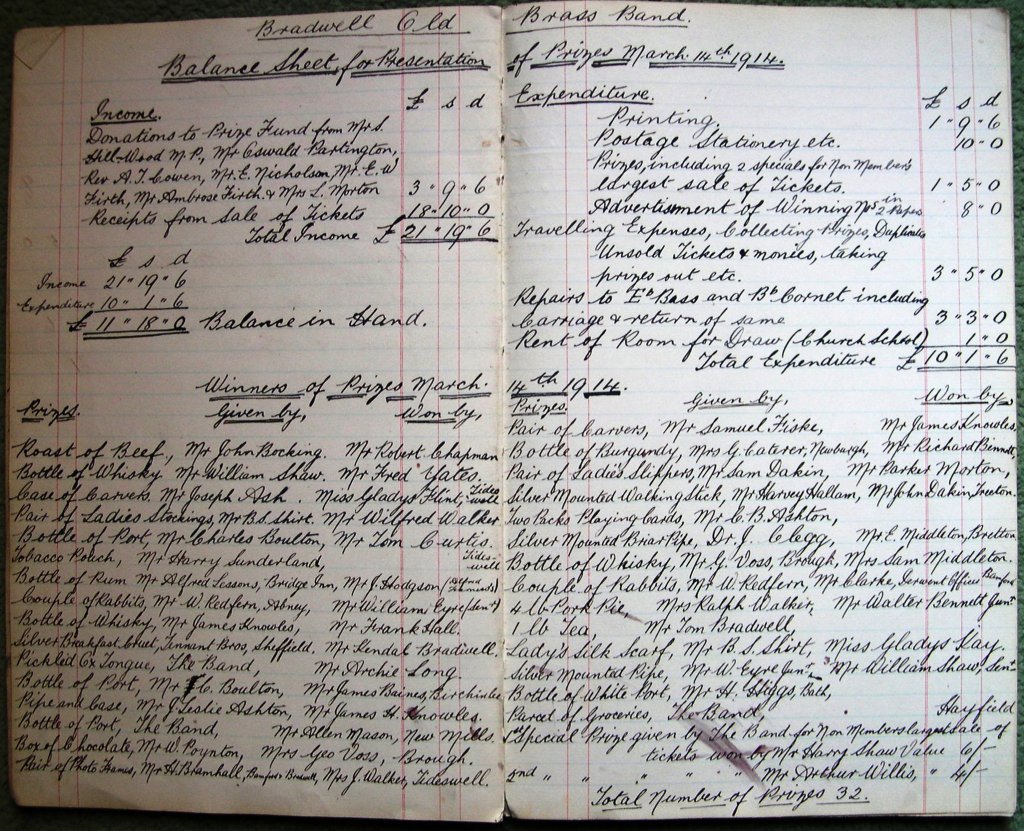 Bradwell Old Brass Band.
Balance Sheet, for Presentation of Prizes March 14th 1914.
£ s d
Income.
Donations to Prize Fund from Mr S.
Hill-Wood M.P., Mr Oswald Partington,
Rev A. T. Cowen, Mr. E. Nicholson, Mr. E. W
Firth, Mr Ambrose Firth & Mrs L. Morton 3 " 9 " 6
Receipts from Sale of Tickets 18 " 10 " 0
Total Income £ 21 " 19 " 6
£ s d
Income 21 " 19 " 6
Expenditure 10 " 1 " 6
£ 11 " 18 " 0 Balance in Hand.
Expenditure. £ s d
Printing. 1 " 9 " 6
Postage Stationery etc. 10 " 0
Prizes, including 2 specials for Non Members
largest sale of Tickets. 1 " 5 " 0
Advertisement of Winning Nos in 2 Papers 8 " 0
Travelling Expenses, Collecting Prizes, Duplicates
Unsold Tickets & monies, taking
prizes out etc. 3 " 5 " 0
Repairs to Eb Bass and Bb Cornet including
Carriage & return of same 3 " 3 " 0
Rent of Room for Draw (Church School) 1 " 0
Total Expenditure £ 10 " 1 " 6
Winners of Prizes March. 14th 1914.
Prizes. Given by, Won by,
Roast of Beef, Mr John Bocking. Mr Robert Chapman
Bottle of Whisky Mr William Shaw. Mr Fred Yates.
Case of Carvers. Mr Joseph Ash. Miss Gladys Flint, Tideswell
Pair of Ladies Stockings, Mr B.S. Shirt. Mr Wilfred Walker
Bottle of Port, Mr Charles Boulton, Mr Tom Curtis. Tideswell
Tobacco Pouch, Mr Harry Sunderland,
Bottle of Rum Mr Alfred Sessons, Bridge Inn, Mr J. Hodgson
Couple of Rabbits, Mr W. Redfern, Abney, Mr William Eyre (Senr)
Bottle of Whisky, Mr James Knowles, Mr Frank Hall.
Silver Breakfast Cruet, Tennant Bros, Sheffield. Mr Kendal Bradwell.
Pickled Ox Tongue, The Band, Mr Archie Long.
Bottle of Port, Mr C. Boulton, Mr James Baines, Birchinlee
Pipe and Case, Mr J Leslie Ashton, Mr James H. Knowles.
Bottle of Port, The Band, Mr Allen Mason, New Mills.
Box of Chocolate, Mr W. Poynton, Mrs Geo Voss, Brough.
Pair of Photo Frames, Mr H. Bramhall, Mrs J. Walker, Tideswell.
Prizes. Given by, Won by
Pair of Carvers, Mr Samuel Fiske, Mr James Knowles.
Bottle of Burgundy, Mrs G. Caterer, Newburgh, Mr Richard Bennett,
Pair of Ladies Slippers, Mr Sam Dakin, Mr Parker Morton,
Silver Mounted Walking Stick, Mr Harvey Hallam, Mr John Dakin, Treeton.
Two Packs Playing Cards, Mr C. B. Ashton,
Silver Mounted Briar Pipe, Dr J. Clegg, Mr E. Middleton, Bretton
Bottle of Whisky, Mr G. Voss, Brough, Mrs Sam Middleton.
Couple of Rabbits, Mr W. Redfern, Mr Clarke, Derwent Office Bamford
4 lb Pork Pie, Mrs Ralph Walker, Mr Walter Bennett Junr
1 lb Tea, Mr Tom Bradwell,
Lady's Silk Scarf, Mr B. S. Shirt, Miss Gladys Kay.
Silver Mounted Pipe, Mr W. Eyre Junr, Mr William Shaw, Senr
Bottle of White Port, Mr H. Higgs, Bath,
Parcel of Groceries, The Band, Hayfield
1st Special Prize given by The Band for Non Members largest sale of
tickets won by Mr Harry Shaw Value 6/-
2nd " " " " " Mr Arthur Willis, " 4/-
Total Number of Prizes 32.